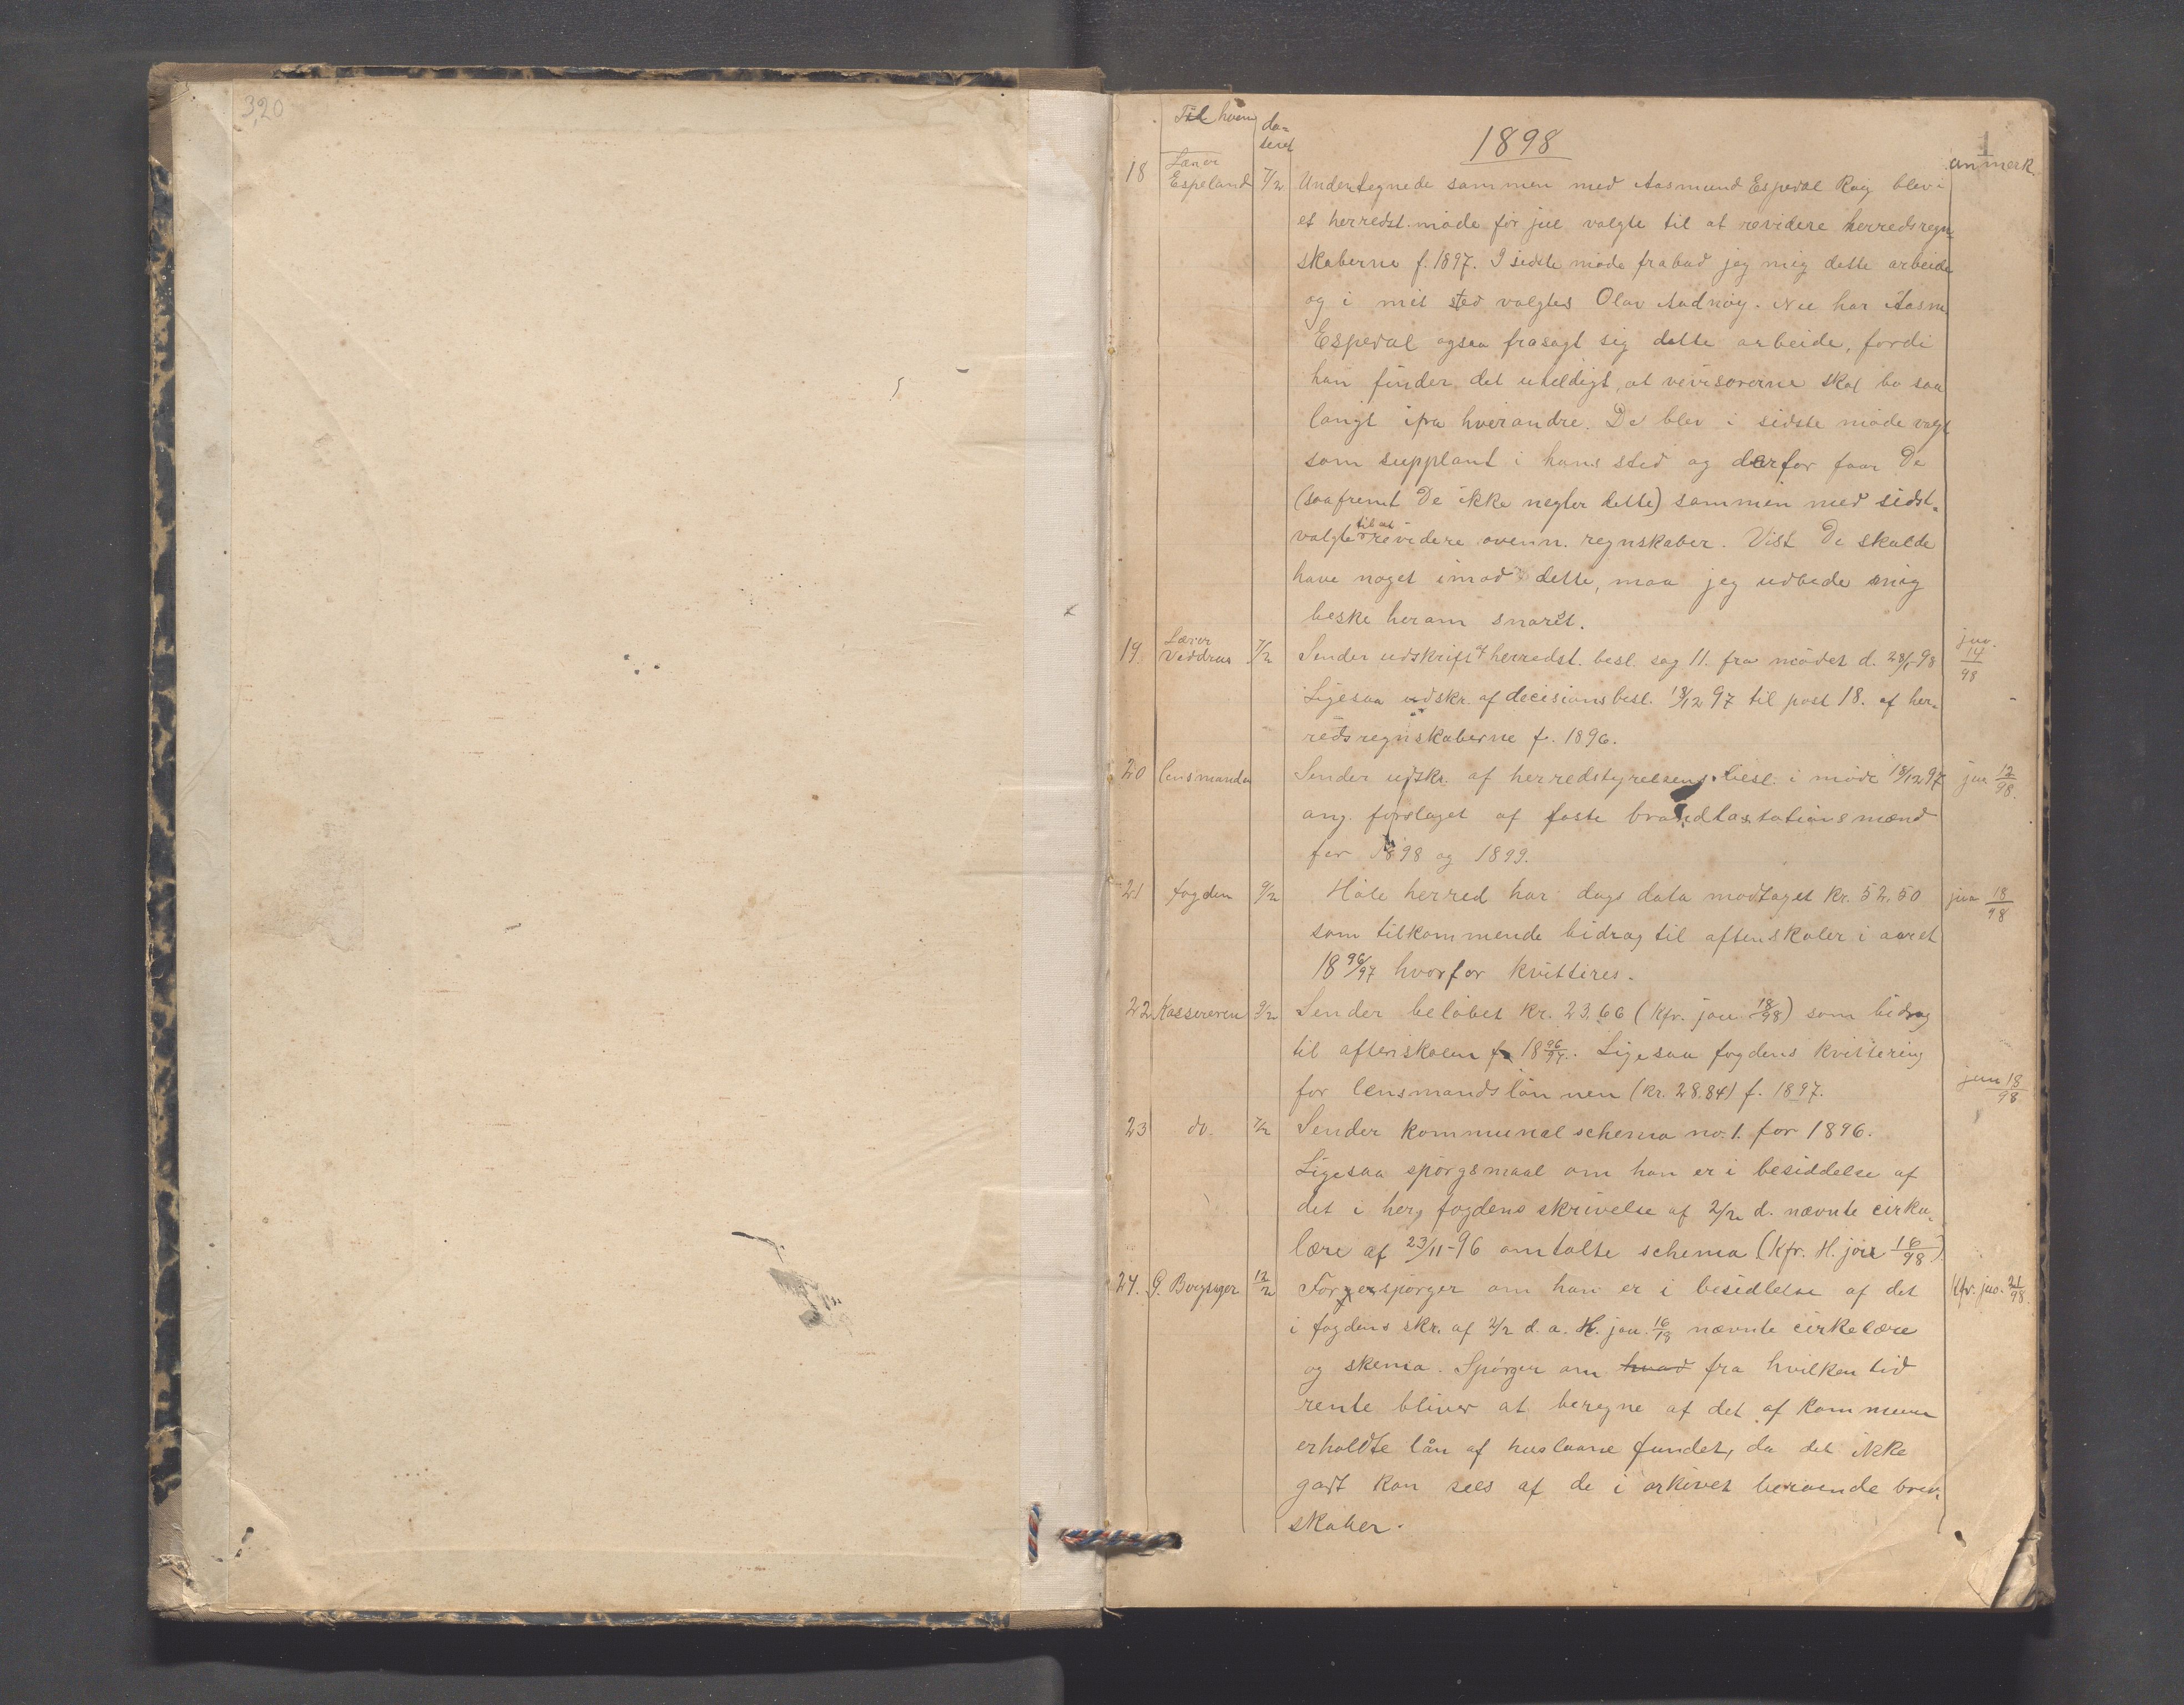 3,20
Til hvem
da-
teret
1898
1
anmerk.
18 Lærer Espeland 7/2 Undertegnede sammen med Aasmund Espedal Røig blev i
et herredst. møde før jul valgte til at revidere herredsregn-
skaberne f. 1897. I sidste møde frabad jeg mig dette arbeide
og i mit sted valgtes Olav Aadnøy. Nu har Aasm.
Espedal ogsaa frasagt sig dette arbeide, fordi
han finder det uheldigt, at revisorerne skal bo saa
langt ifra hverandre. De blev i sidste møde valgt
som supplant i hans sted og derfor faar De
(saafremt De ikke negter dette) sammen med sidst-
valgte til at revidere ovenn. regnskaber. Vist De skulde
have noget imod dette, maa jeg udbede mig
beske herom snarest.
19 Lærer Veddrus 7/2 Sender udskrift af herredst. besl. sag 11. fra mødet d. 28/1-98 jno. 14/98
Ligesaa udskr. af decisionsbesl. 18/12 97 til post 18. af her-
redsregnskaberne f. 1896.
20 lensmanden Sender udskr. af herredstyrelsens besl. i møde 18/12 97 jno 12/98.
ang. forslaget af faste brandtaxtationsmænd
for 1898 og 1899.
21 fogden 9/2 Høle herred har dags dato modtaget kr. 52.50 jno 18/98
som tilkommende bidrag til aftenskoler i aaret
18 96/97 hvorfor kvitteres.
22 Kassereren 9/2 Sender beløbet kr. 23.66 (kfr. jou. 18/98) som bidrag
til aftenskolen f. 18 96/97. Ligesaa fogdens kvittering
for lensmandslønnen (kr. 28.84) f. 1897. jno 18/98
23 do. 7/2 Sender kommunal schema no. 1. for 1896.
Ligesaa spørgsmaal om han er i besiddelse af
det i herr fogdens skrivelse af 2/2 d. nævnte cirku-
lære af 23/11-96 omtalte schema (kfr. H. jou 16/98)
24. G. Bergsagel 12/2 Forrespørger om han er i besidlelse af det kfr. jno. 21/98.
i fogdens skr. af 2/2 d. a. H. jou. 16/98 nævnte cirkelære
og skema. Spørger om hvad fra hvilken tid
rente bliver at beregne af det af kommunen
erholdte lån af huslaane fundet, da det ikke
godt kan sees af de i arkivet beroende brev-
skaber.